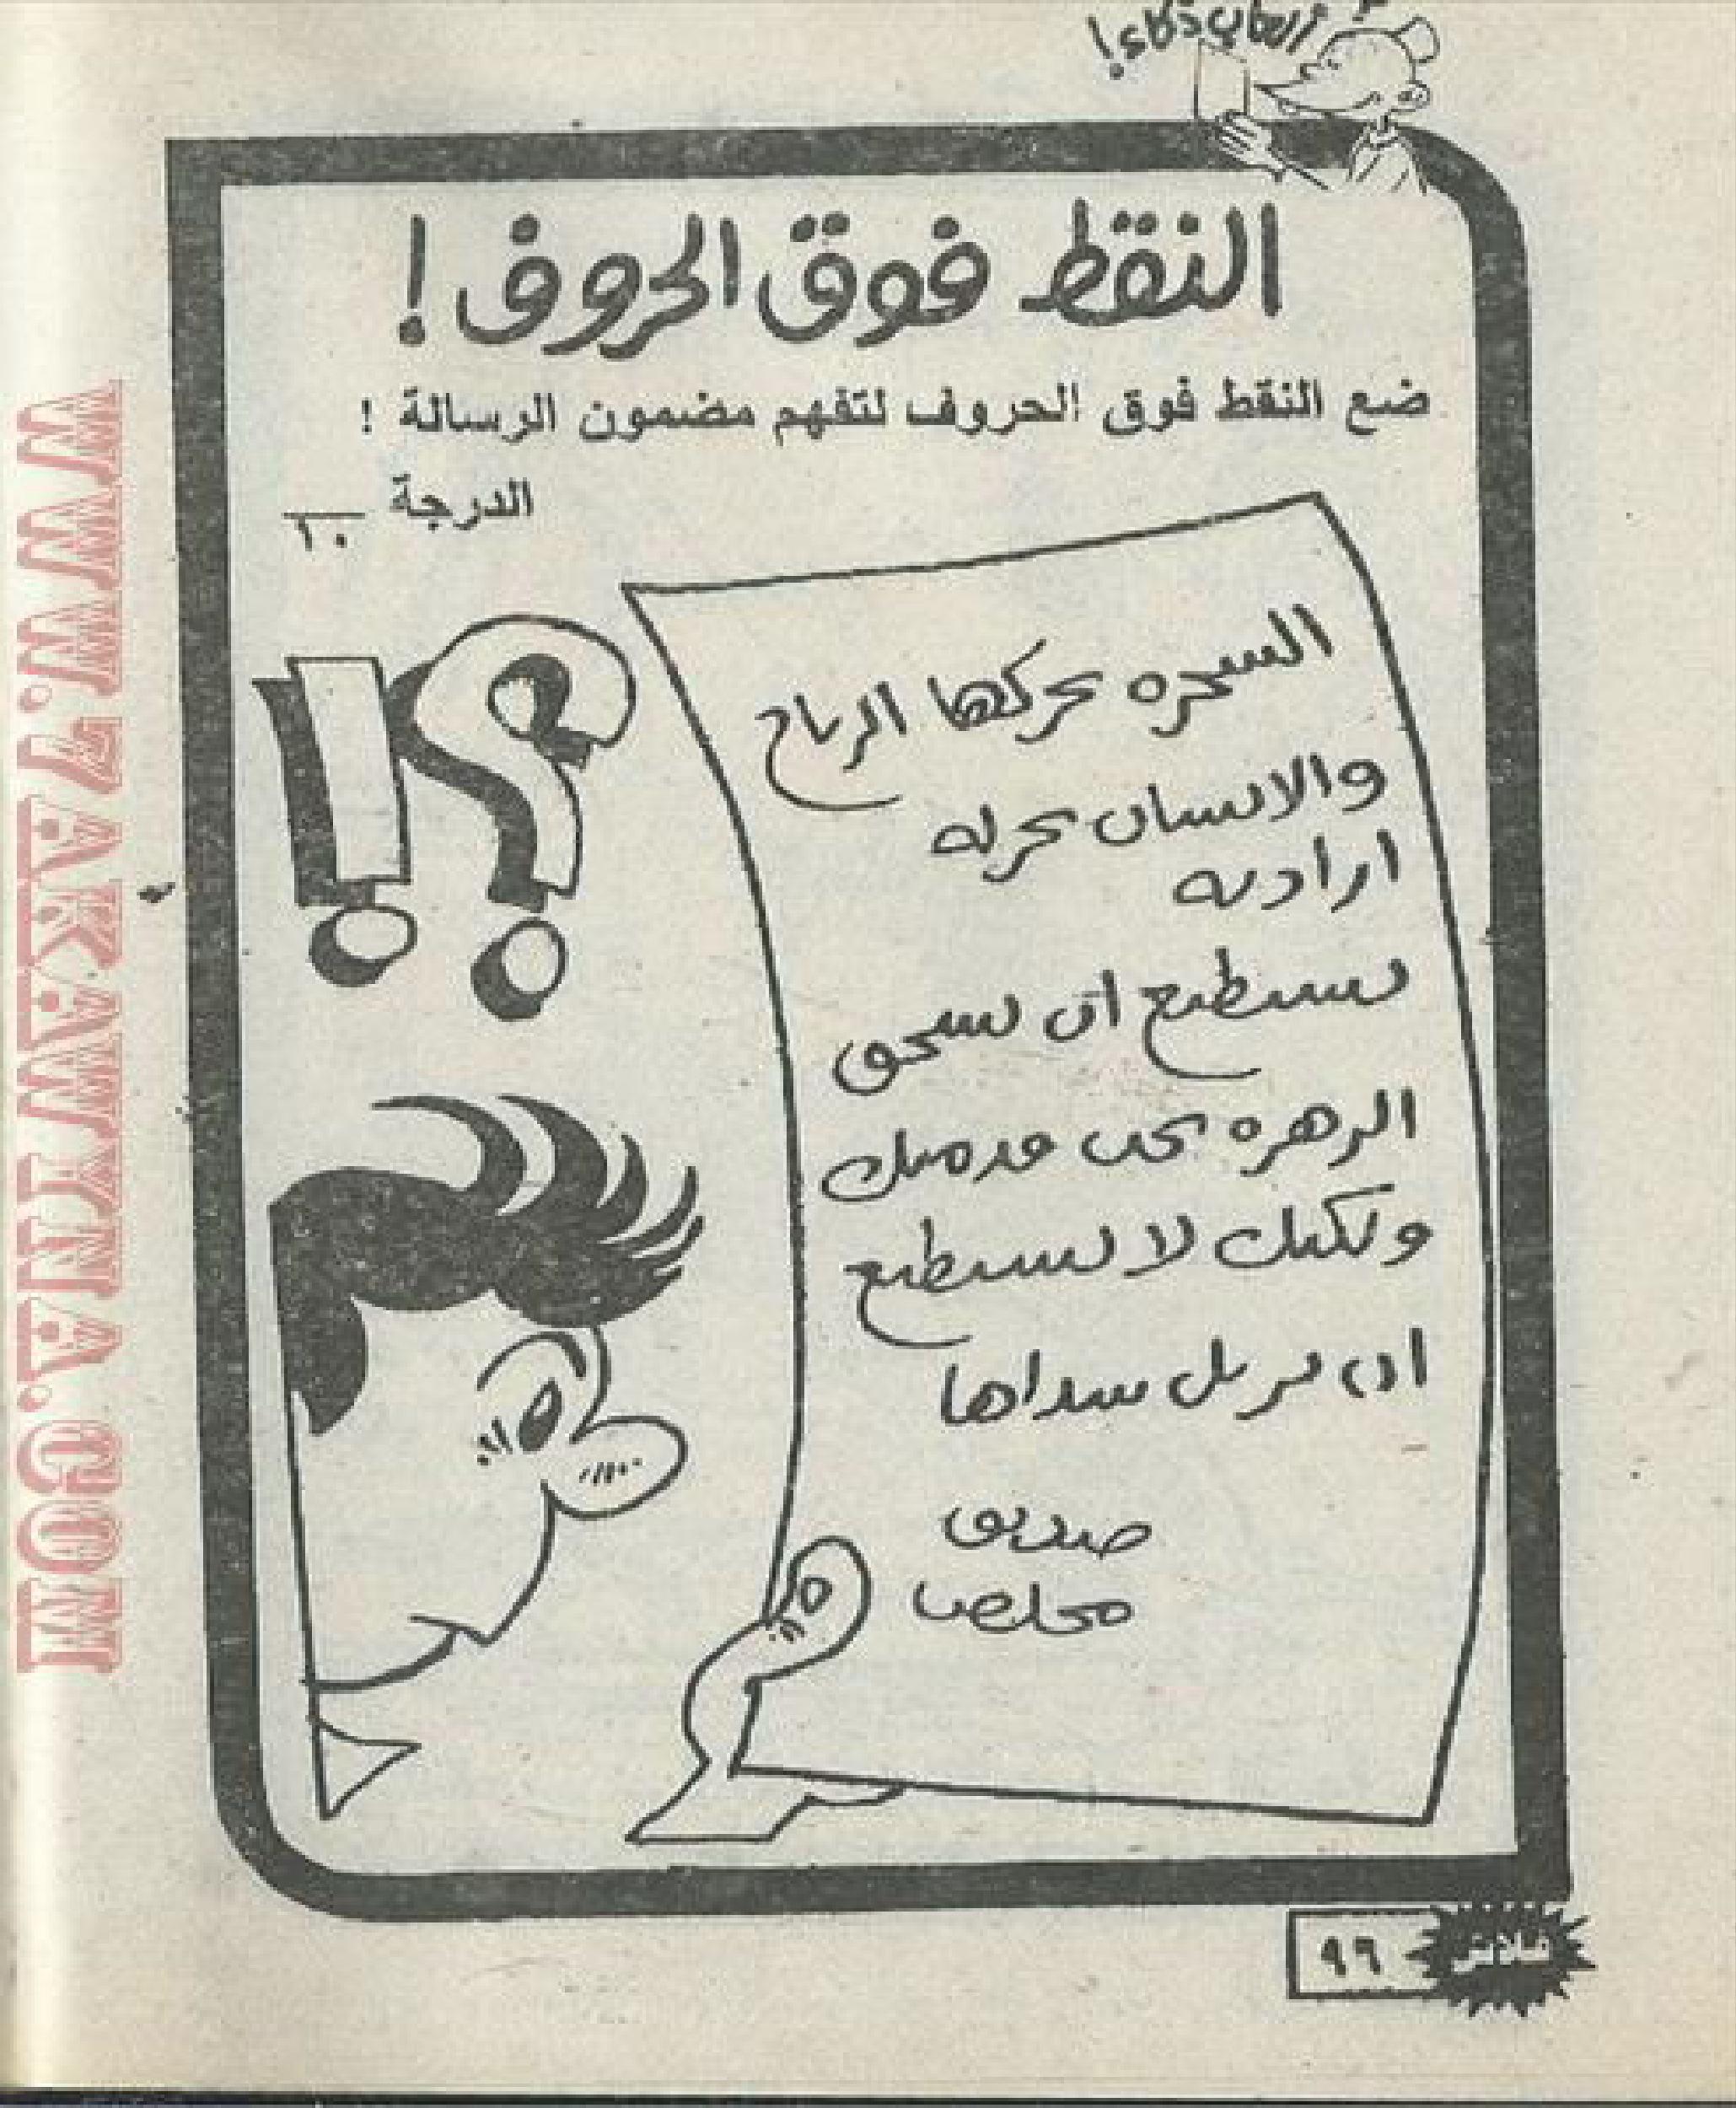 ألعاب ذكاء!
النقط فوق الحروف!
ضع النقط فوق الحروف لتفهم مضمون الرسالة !
الدرجة ١٠
السحره ٮحركها الرٮاح
والاٮساں ٮحركه
ارادٮه
ٮسٮطٮع اں ٮسحٯ
الرهره ٮحٮ ٯدمٮك
ولكٮك لا ٮسٮطٮع
اں ٮرٮل سداها
صدٮٯ
محلص
فلاش ٩٦
WWW.7AKAWYNA.COM